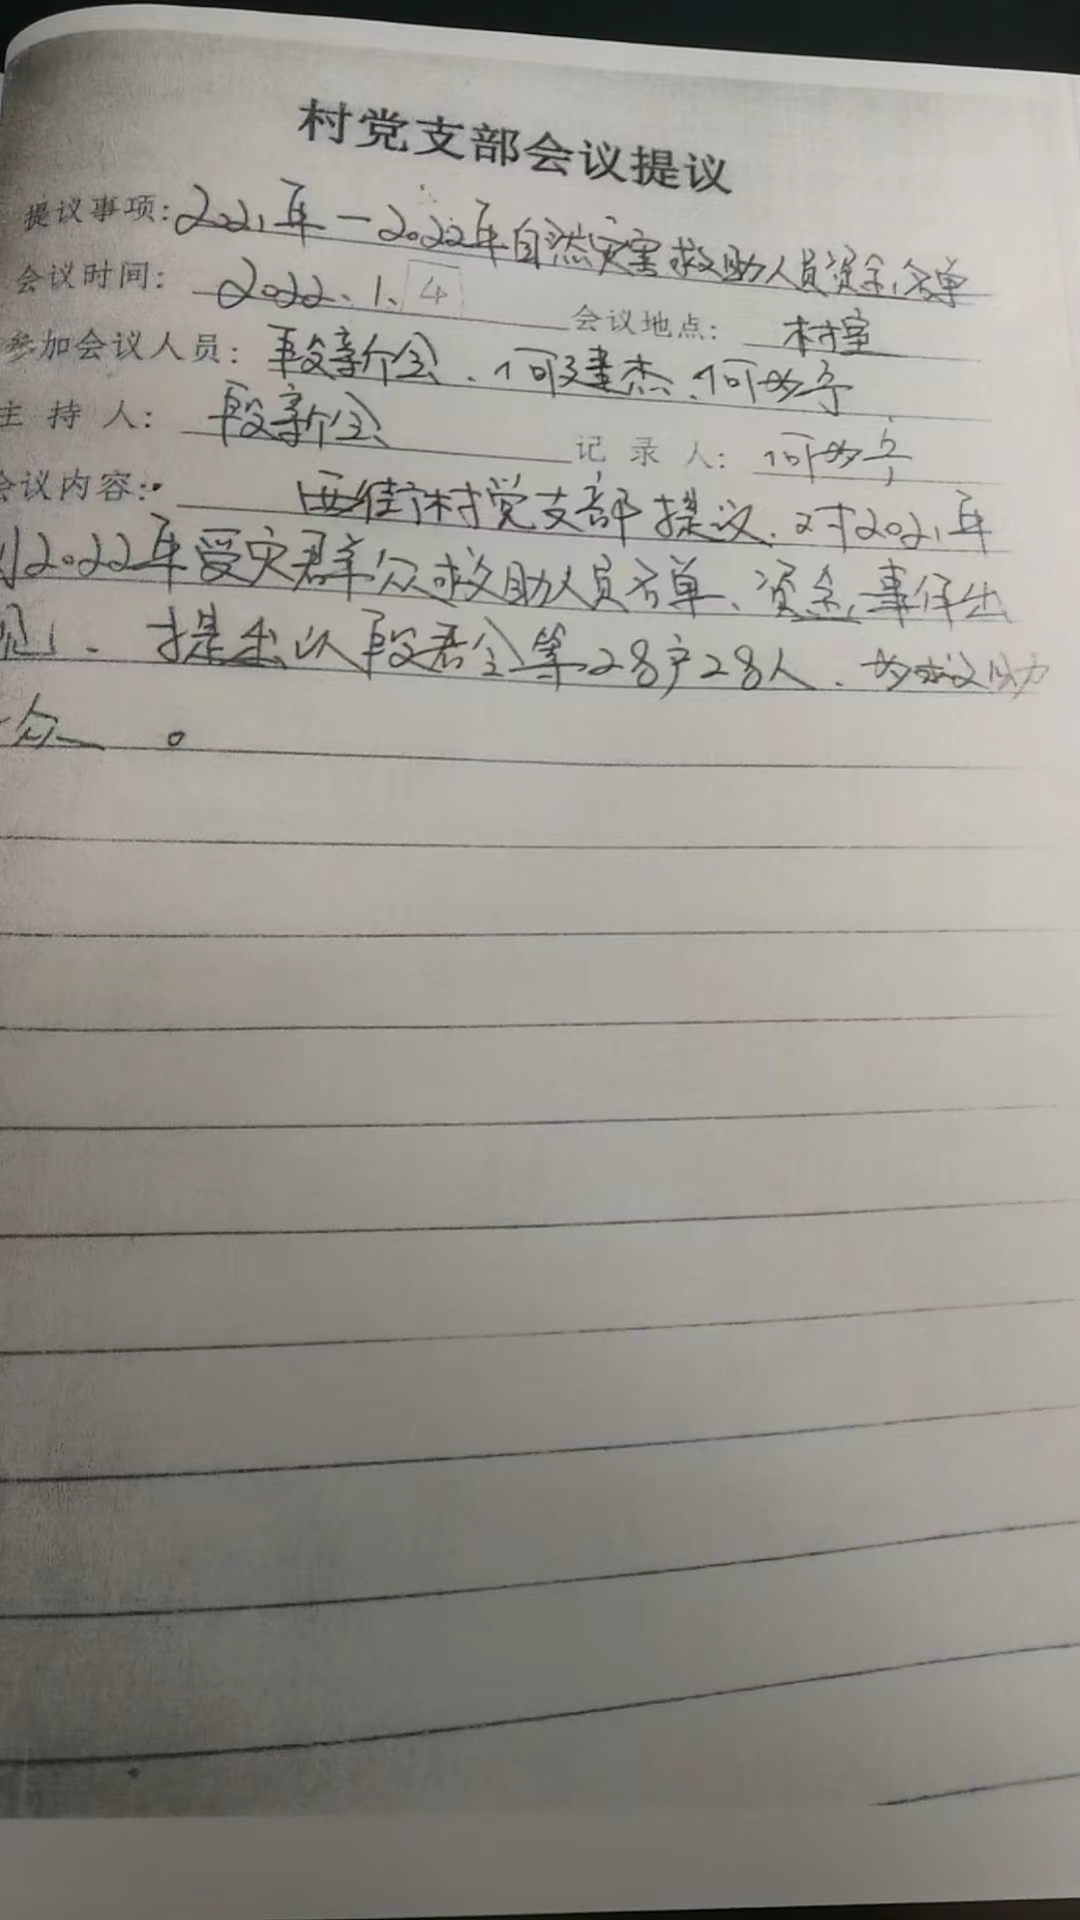 村党支部会议提议
提议事项:2021年一2022年自然灾害救助人员资金名单
会议时间: 2022、1、4 会议地点: 村室
参加会议人员: 段新会、何建杰、何
主持人: 段新会 记录人: 何
会议内容: 西街村党支部提议、对2021年
2022年受灾群众救助人员名单、资金,事作出
提出以段君会等28户28人、为救助
众 。